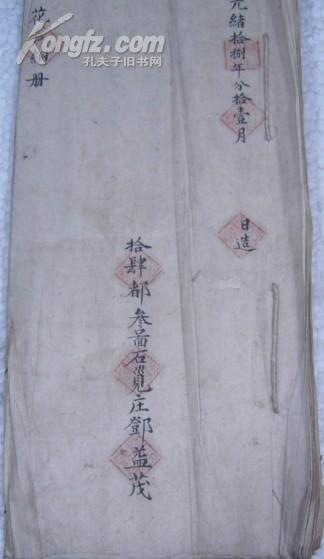 光緒拾捌年分拾壹月 日造
拾肆都叁啚石覓庄鄧益茂
花 册
Kongfz.com
孔夫子旧书网